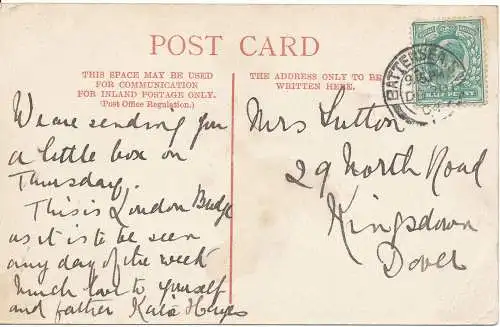 POST CARD
THIS SPACE MAY BE USED
FOR COMMUNICATION
FOR INLAND POSTAGE ONLY.
(Post Office Regulation.)
We are sending you
a little box on
Thursday.
This is London Bridge
as it is to be seen
any day of the week
Much love to yourself
and father Katie Hayes
THE ADDRESS ONLY TO BE
WRITTEN HERE.
Mrs Sutton
29 North Road
Kingsdown
Dover
BATTERSEA